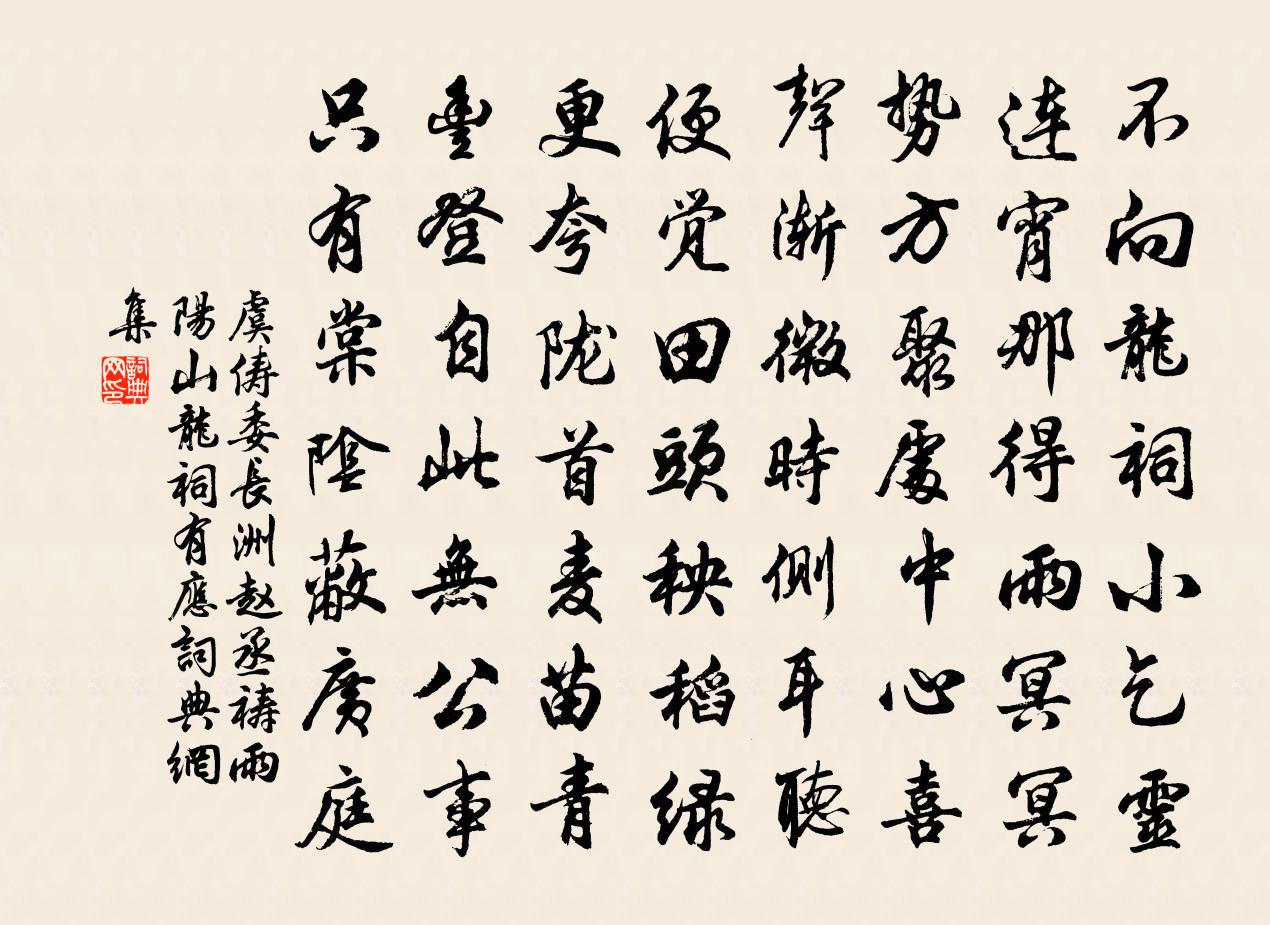 不向龍祠小乞靈
連宵那得雨冥冥
势方聚處中心喜
聲漸微時側耳聽
便覚田頭秧稻绿
更夸陇首麦苗青
豊登自此無公事
只有棠陰蔽廣庭
虞俦委長洲赵丞祷雨
陽山龍祠有應詞典網
集
詞典
网印